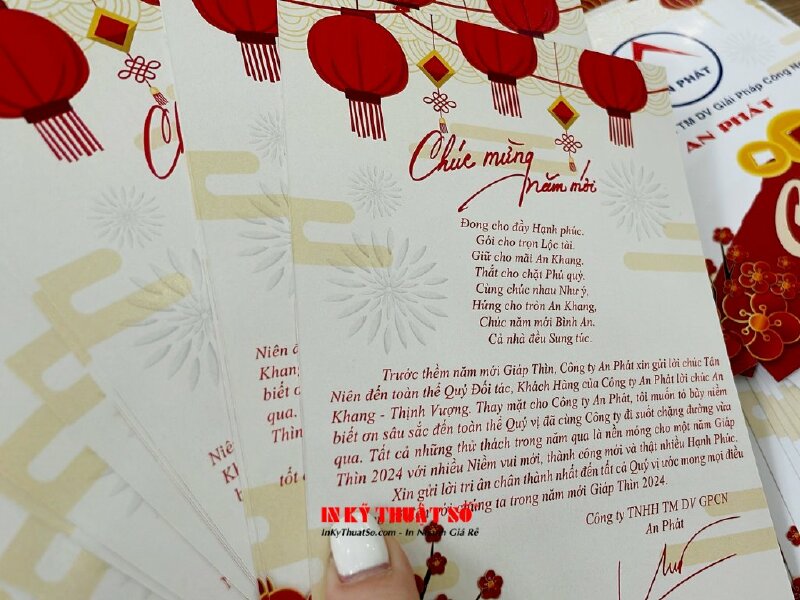 Chúc mừng
năm mới
Đong cho đầy Hạnh phúc.
Gói cho trọn Lộc tài.
Giữ cho mãi An Khang.
Thắt cho chặt Phú quý.
Cùng chúc nhau Như ý,
Hứng cho tròn An Khang,
Chúc năm mới Bình An.
Cả nhà đều Sung túc.
Trước thềm năm mới Giáp Thìn, Công ty An Phát xin gửi lời chúc Tân
Niên đến toàn thể Quý Đối tác, Khách Hàng của Công ty An Phát lời chúc An
Khang - Thịnh Vượng. Thay mặt cho Công ty An Phát, tôi muốn tỏ bày niềm
biết ơn sâu sắc đến toàn thể Quý vị đã cùng Công ty đi suốt chặng đường vừa
qua. Tất cả những thử thách trong năm qua là nền móng cho một năm Giáp
Thìn 2024 với nhiều Niềm vui mới, thành công mới và thật nhiều Hạnh Phúc.
Xin gửi lời tri ân chân thành nhất đến tất cả Quý vị ước mong mọi điều
ta trong năm mới Giáp Thìn 2024.
Công ty TNHH TM DV GPCN
An Phát
IN KỸ THUẬT SỐ
InKyThuatSo.com - In Nhanh Giá Rẻ
Niên
Khang
biết ơn
qua.
Thìn
Niê
Kha
biế
qua
tốt
AN PHÁT
TM DV Giải Pháp Công
AN PHÁT